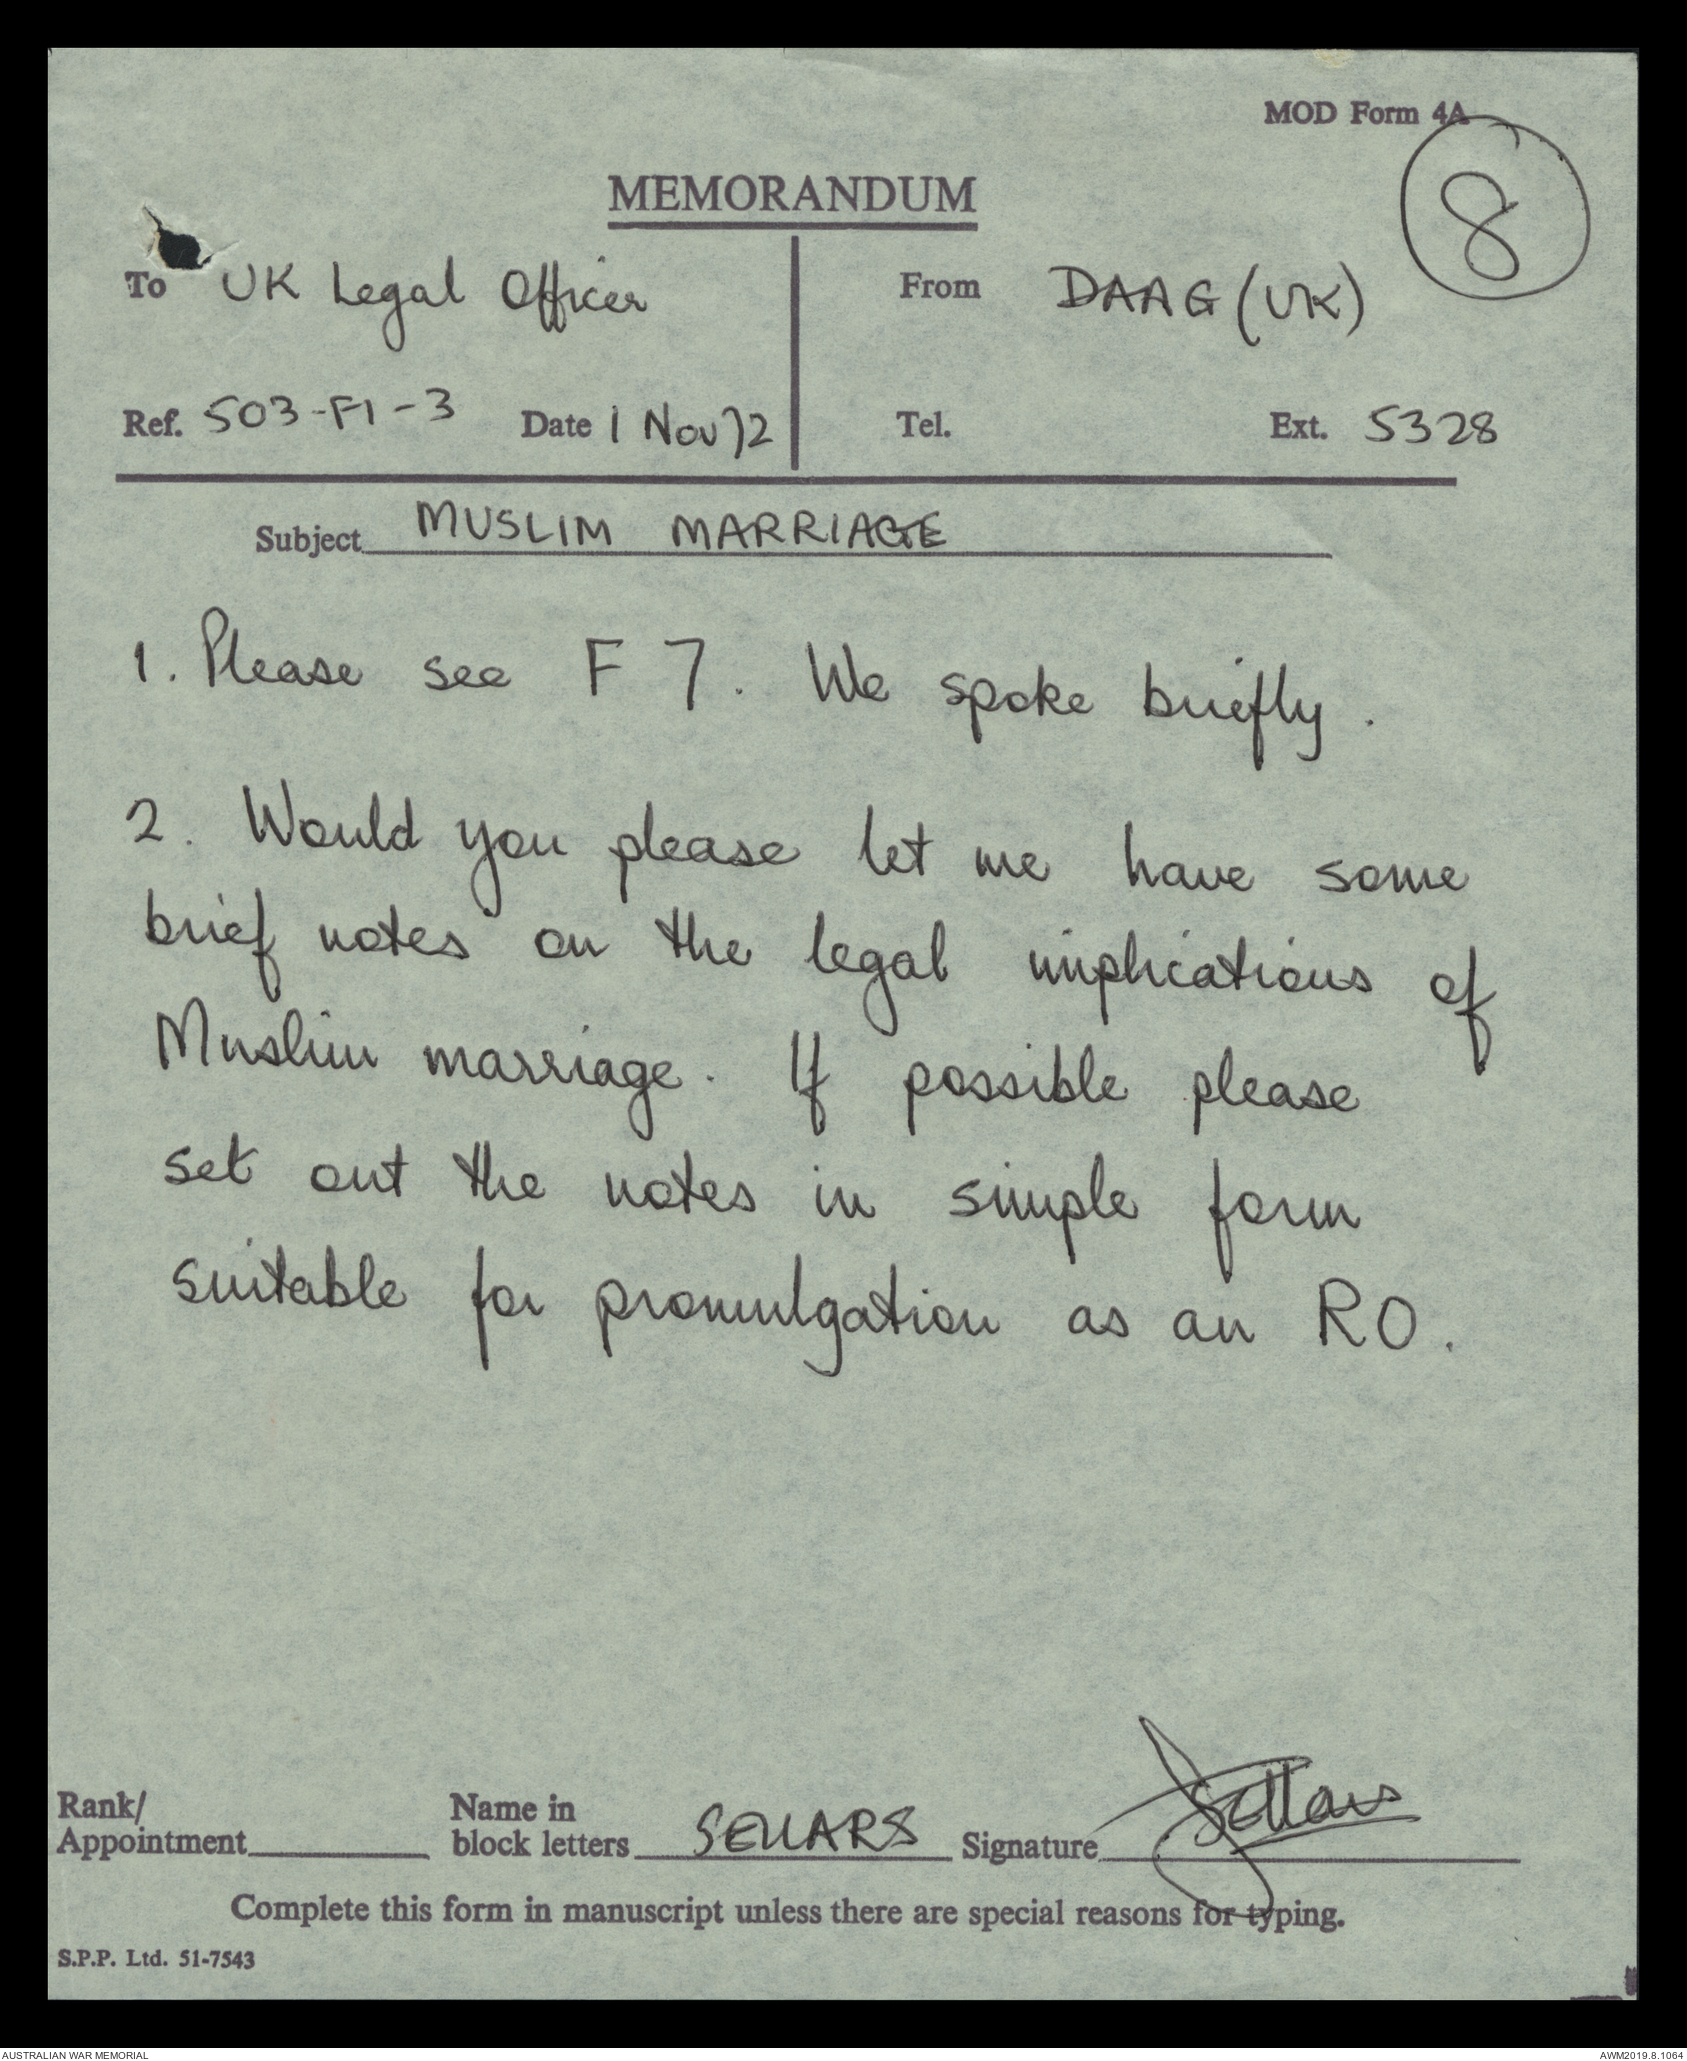 MOD Form 4A
8
MEMORANDUM
To UK Legal Officer
From DAAG (UK)
Ref. 503-F1-3 Date 1 Nov 72
Tel. Ext. 5328
Subject MUSLIM MARRIAGE
1. Please see F 7. We spoke briefly.
2. Would you please let me have some
brief notes on the legal implications of
Muslim marriage. If possible please
set out the notes in simple form
suitable for promulgation as an RO.
Rank/
Appointment
Name in
block letters SELLARS Signature Sellars
Complete this form in manuscript unless there are special reasons for typing.
S.P.P. Ltd. 51-7543
AUSTRALIAN WAR MEMORIAL AWM2019.8.1064